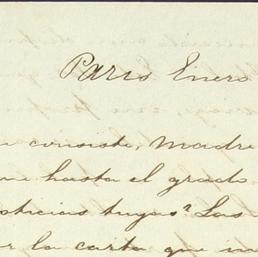 Paris Enero
consiste, Madre
hasta el grado
noticias tuyas? Las
la carta que